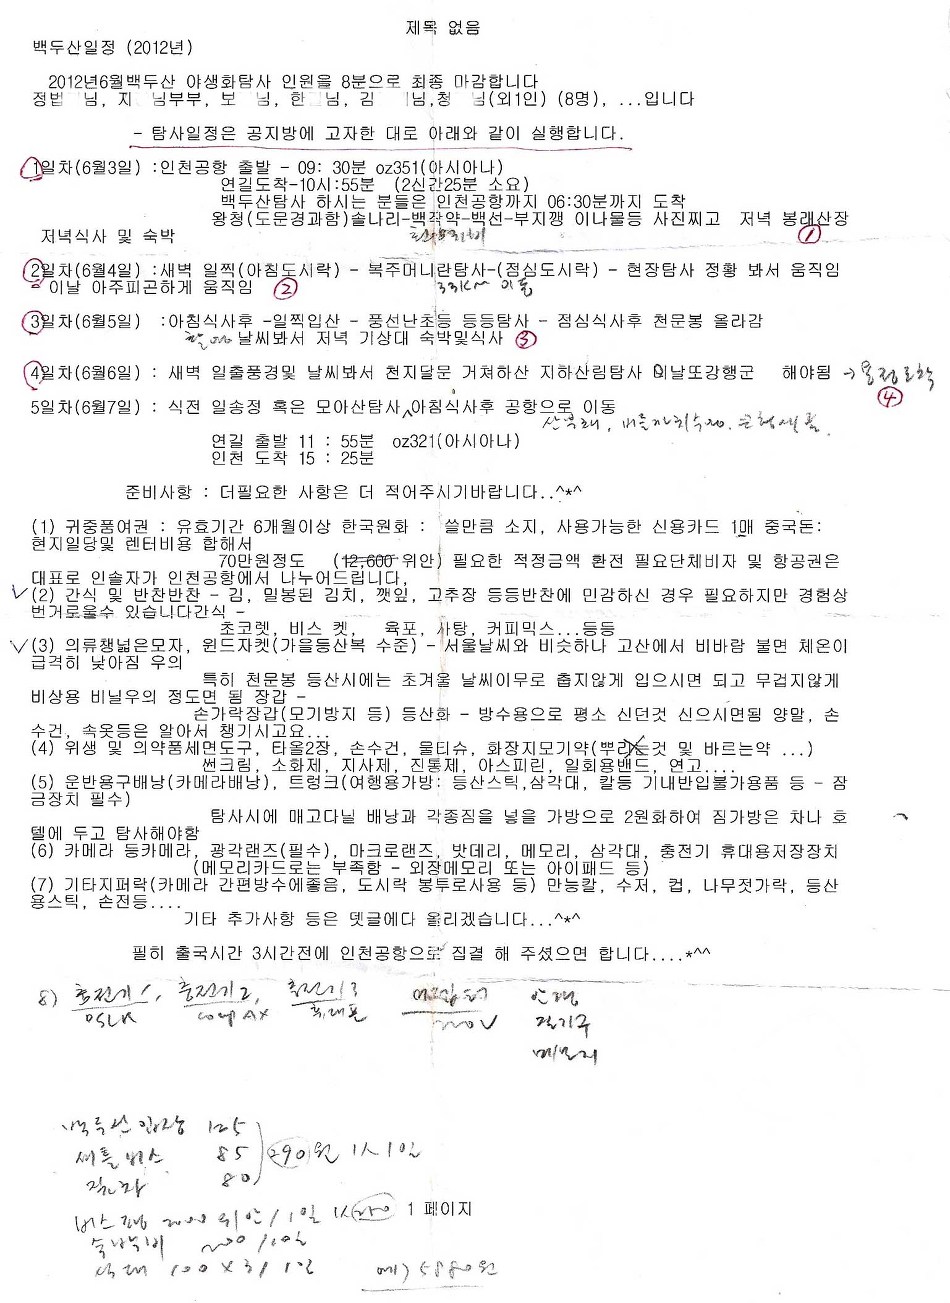 제목 없음
백두산일정 (2012년)
2012년6월백두산 야생화탐사 인원을 8분으로 최종 마감합니다
정법 님, 지 님부부, 보 님, 한 님, 김 님,청 님(외1인) (8명), ...입니다
- 탐사일정은 공지방에 고자한 대로 아래와 같이 실행합니다.
1일차(6월3일) :인천공항 출발 - 09: 30분 oz351(아시아나)
연길도착-10시:55분 (2신간25분 소요)
백두산탐사 하시는 분들은 인천공항까지 06:30분까지 도착
왕청(도문경과함)솔나리-백작약-백선-부지깽 이나물등 사진찌고 저녁 봉래산장
저녁식사 및 숙박
①
2일차(6월4일) :새벽 일찍(아침도시락) - 복주머니란탐사-(점심도시락) - 현장탐사 정황 봐서 움직임
이날 아주피곤하게 움직임 ② 33km 이동
3일차(6월5일) :아침식사후 -일찍입산 - 풍선난초등 등등탐사 - 점심식사후 천문봉 올라감
날씨봐서 저녁 기상대 숙박및식사 ③
4일차(6월6일) : 새벽 일출풍경및 날씨봐서 천지달문 거쳐하산 지하산림탐사 이날또강행군 해야됨 →
④
5일차(6월7일) : 식전 일송정 혹은 모아산탐사 아침식사후 공항으로 이동
연길 출발 11 : 55분 oz321(아시아나)
인천 도착 15 : 25분
준비사항 : 더필요한 사항은 더 적어주시기바랍니다..^*^
(1) 귀중품여권 : 유효기간 6개월이상 한국원화 : 쓸만큼 소지, 사용가능한 신용카드 1매 중국돈:
현지일당및 렌터비용 합해서
70만원정도 (12,600 위안) 필요한 적정금액 환전 필요단체비자 및 항공권은
대표로 인솔자가 인천공항에서 나누어드립니다,
(2) 간식 및 반찬반찬 - 김, 밀봉된 김치, 깻잎, 고추장 등등반찬에 민감하신 경우 필요하지만 경험상
번거로울수 있습니다간식 -
초코렛, 비스 켓, 육포, 사탕, 커피믹스...등등
(3) 의류챙넓은모자, 윈드자켓(가을등산복 수준) - 서울날씨와 비슷하나 고산에서 비바람 불면 체온이
급격히 낮아짐 우의
특히 천문봉 등산시에는 초겨울 날씨이무로 춥지않게 입으시면 되고 무겁지않게
비상용 비닐우의 정도면 됨 장갑 -
손가락장갑(모기방지 등) 등산화 - 방수용으로 평소 신던것 신으시면됨 양말, 손
수건, 속옷등은 알아서 챙기시고요...
(4) 위생 및 의약품세면도구, 타올2장, 손수건, 물티슈, 화장지모기약(뿌리는것 및 바르는약 ...)
썬크림, 소화제, 지사제, 진통제, 아스피린, 일회용밴드, 연고....
(5) 운반용구배낭(카메라배낭), 트렁크(여행용가방: 등산스틱,삼각대, 칼등 기내반입불가용품 등 - 잠
금장치 필수)
탐사시에 매고다닐 배낭과 각종짐을 넣을 가방으로 2원화하여 짐가방은 차나 호
텔에 두고 탐사해야함
(6) 카메라 등카메라, 광각랜즈(필수), 마크로랜즈, 밧데리, 메모리, 삼각대, 충전기 휴대용저장장치
(메모리카드로는 부족함 - 외장메모리 또는 아이패드 등)
(7) 기타지퍼락(카메라 간편방수에좋음, 도시락 봉투로사용 등) 만능칼, 수저, 컵, 나무젓가락, 등산
용스틱, 손전등....
기타 추가사항 등은 뎃글에다 올리겠습니다...^*^
필히 출국시간 3시간전에 인천공항으로 집결 해 주셨으면 합니다....*^^
8) 충전기1, 충전기2, 충전기3
DSLR 휴대폰 220V 면기구
메모리
백두산 입장 125
셔틀버스 85 290원 1人1일
80
버스 2000 위안/1일 1人
1 페이지
숙박비 200/1일
식대 100 X 3/1일 계) 5880원